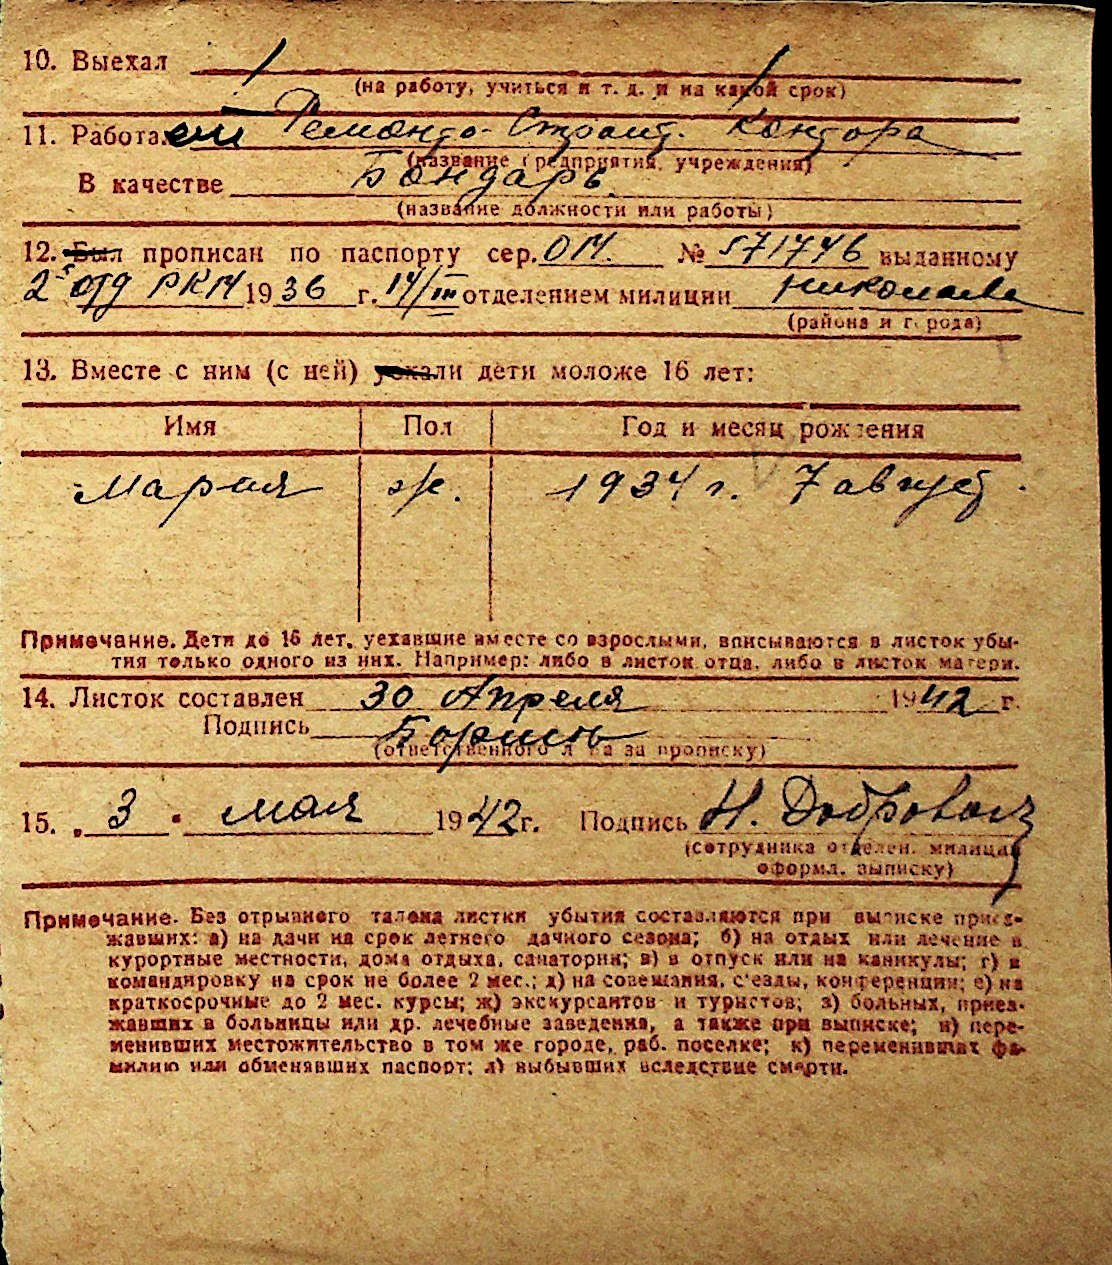 10. Выехал /
(на работу, учиться и т. д. и на какой срок)
11. Работает Ремонто-Строит. Контора
(название предприятия, учреждения)
В качестве Бондарь
(название должности или работы)
12. Был прописан по паспорту сер. ОМ. № 571746 выданному
2 отд РКМ 1936 г. 14/III отделением милиции Николаева
(района и города)
13. Вместе с ним (с ней) уехали дети моложе 16 лет:
Имя Пол Год и месяц рождения
Мария ж. 1934 г. 7 август.
Примечание. Дети до 16 лет, уехавшие вместе со взрослыми, вписываются в листок убы-
тия только одного из них. Например: либо в листок отца, либо в листок матери.
14. Листок составлен 30 Апреля 1942 г.
Подпись
(ответственного лица за прописку)
15. „3" мая 1942 г. Подпись Н. Доброволь
(сотрудника отделен. милиции
оформл. выписку)
Примечание. Без отрывного талона листки убытия составляются при выписке приез-
жавших: а) на дачи на срок летнего дачного сезона; б) на отдых или лечение в
курортные местности, дома отдыха, санатории; в) в отпуск или на каникулы; г) в
командировку на срок не более 2 мес.; д) на совещания, с'езды, конференции; е) на
краткосрочные до 2 мес. курсы; ж) экскурсантов и туристов; з) больных, приез-
жавших в больницы или др. лечебные заведения, а также при выписке; и) пере-
менивших местожительство в том же городе, раб. поселке; к) переменивших фа-
милию или обменявших паспорт; л) выбывших вследствие смерти.